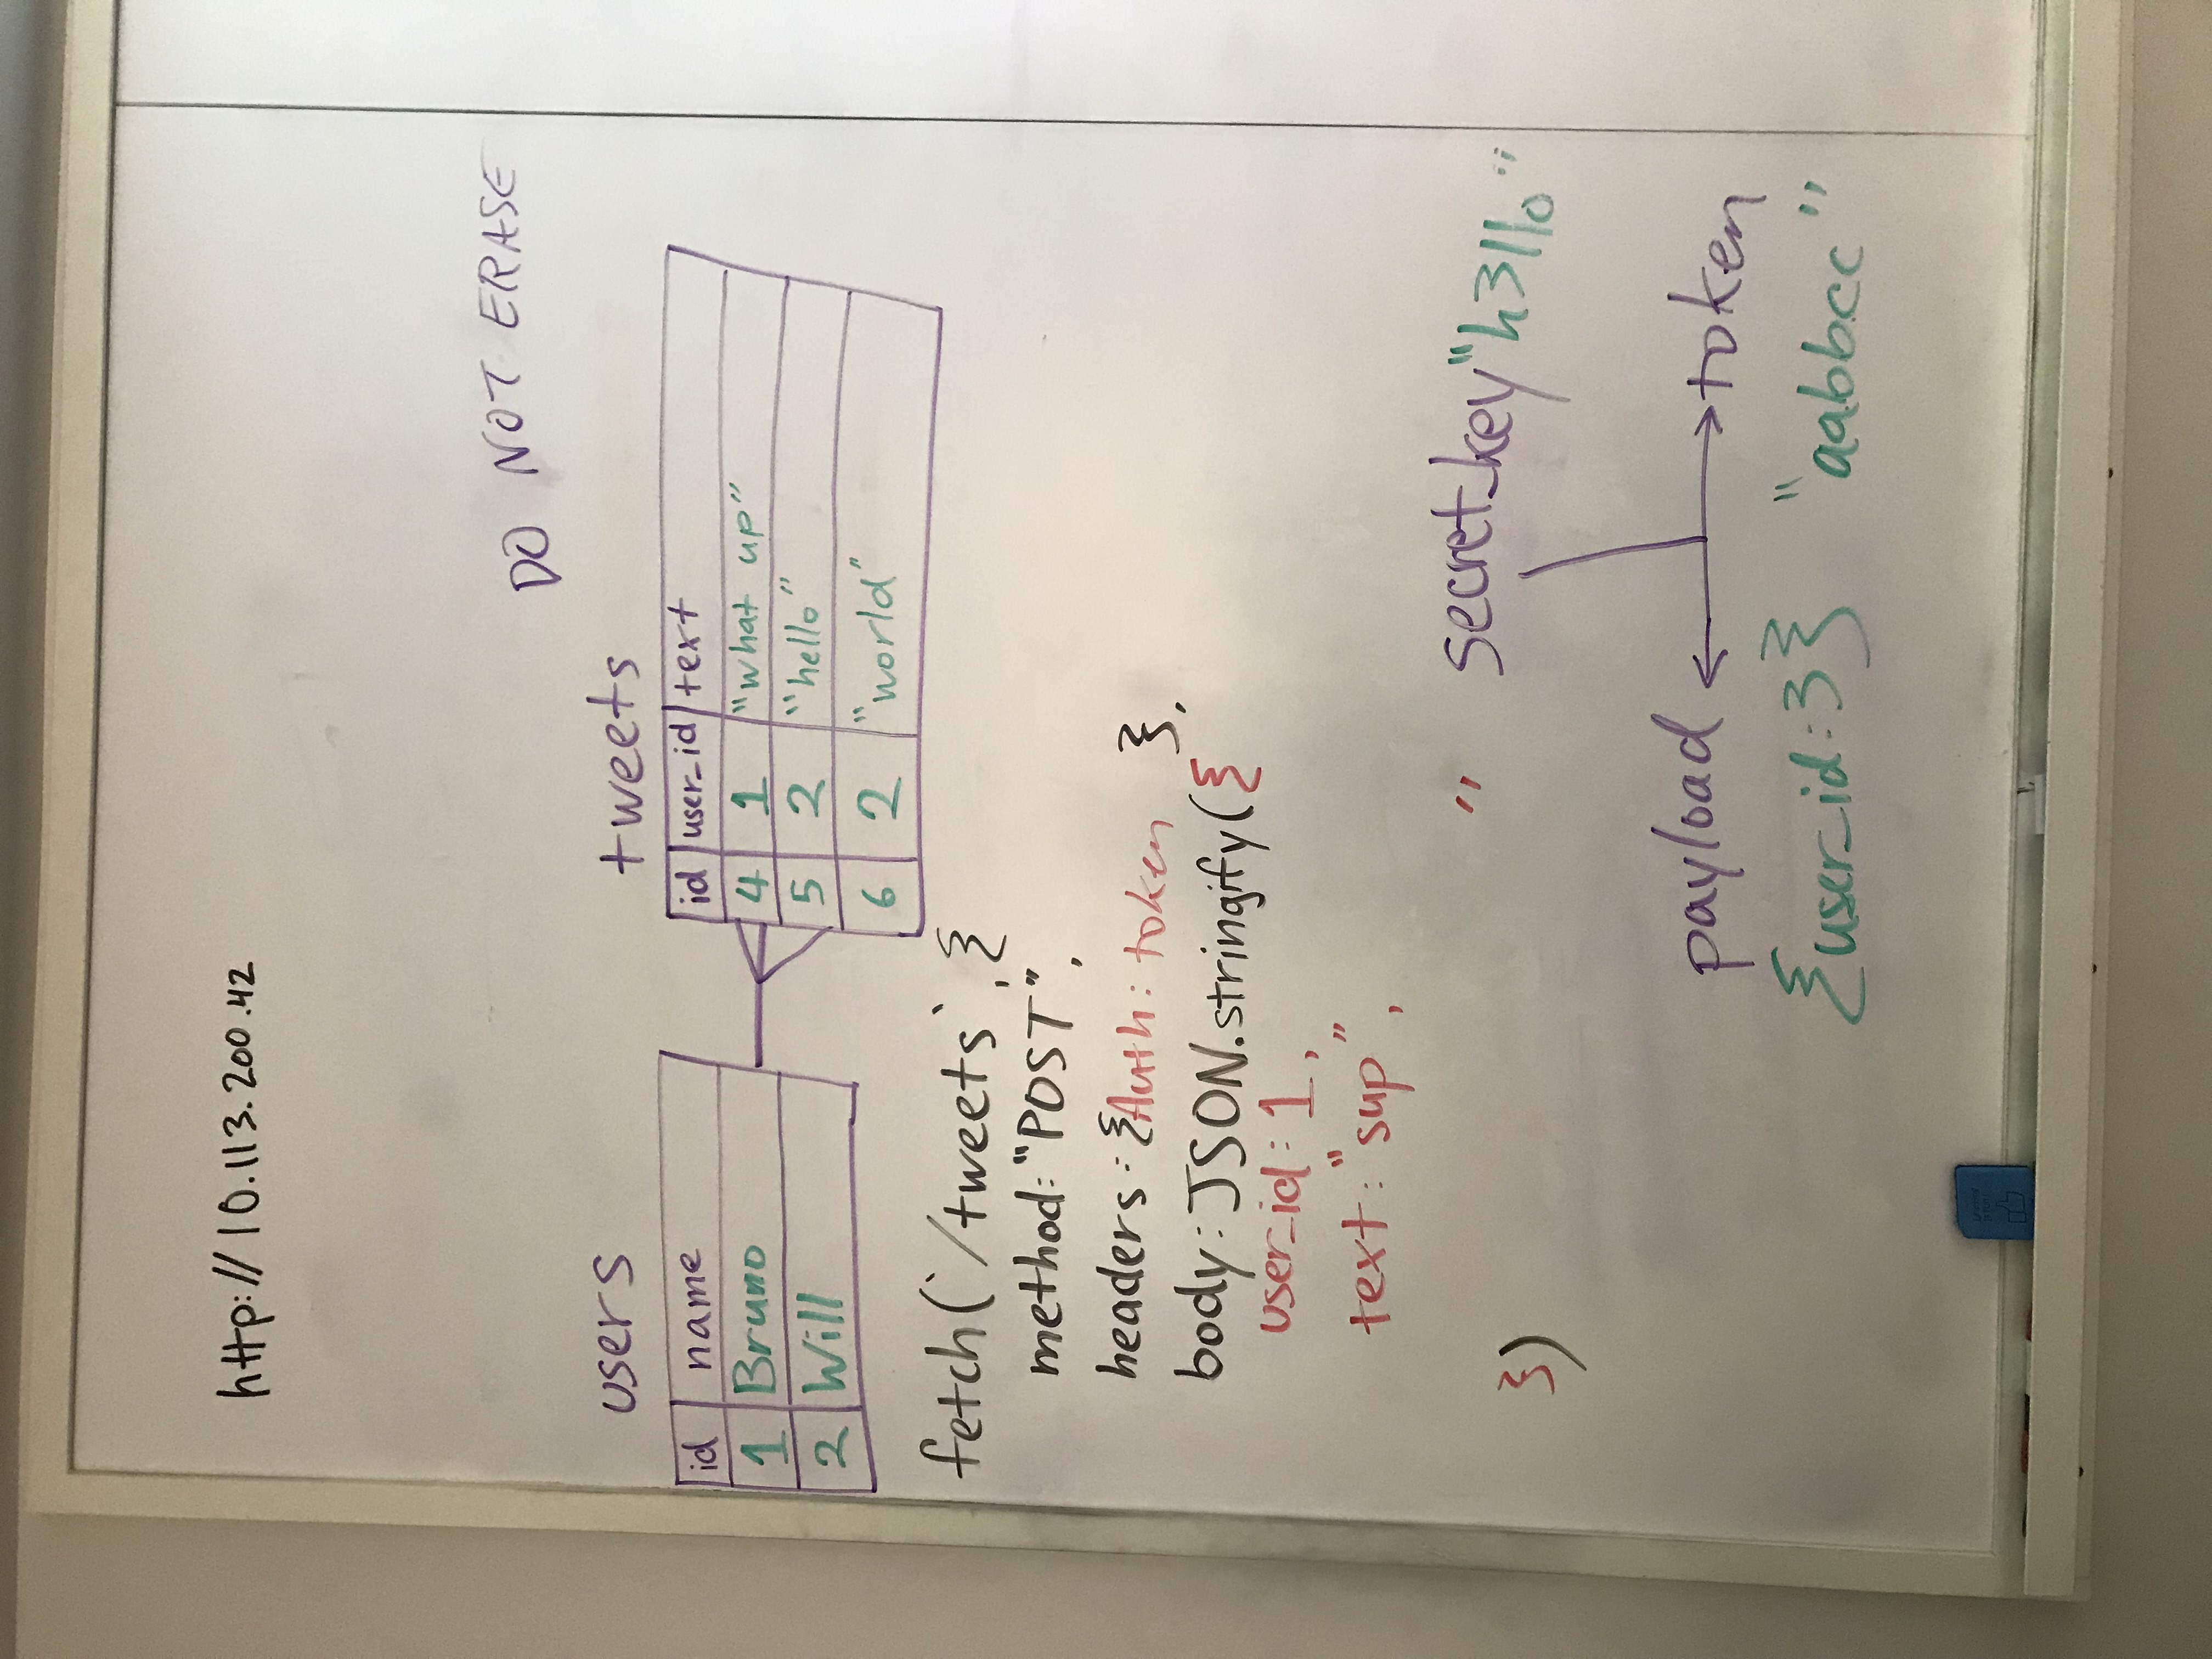 http://10.113.200.42
DO NOT ERASE
users
id name
1 Bruno
2 Will
tweets
id user_id text
4 1 "what up"
5 2 "hello"
6 2 "world"
fetch(`/tweets`,{
method:"POST",
headers:{Auth: token },
body:JSON.stringify({
user_id: 1,
text: "sup",
})
" secret_key "h3llo"
payload token
{user_id:3} "aabbcc"